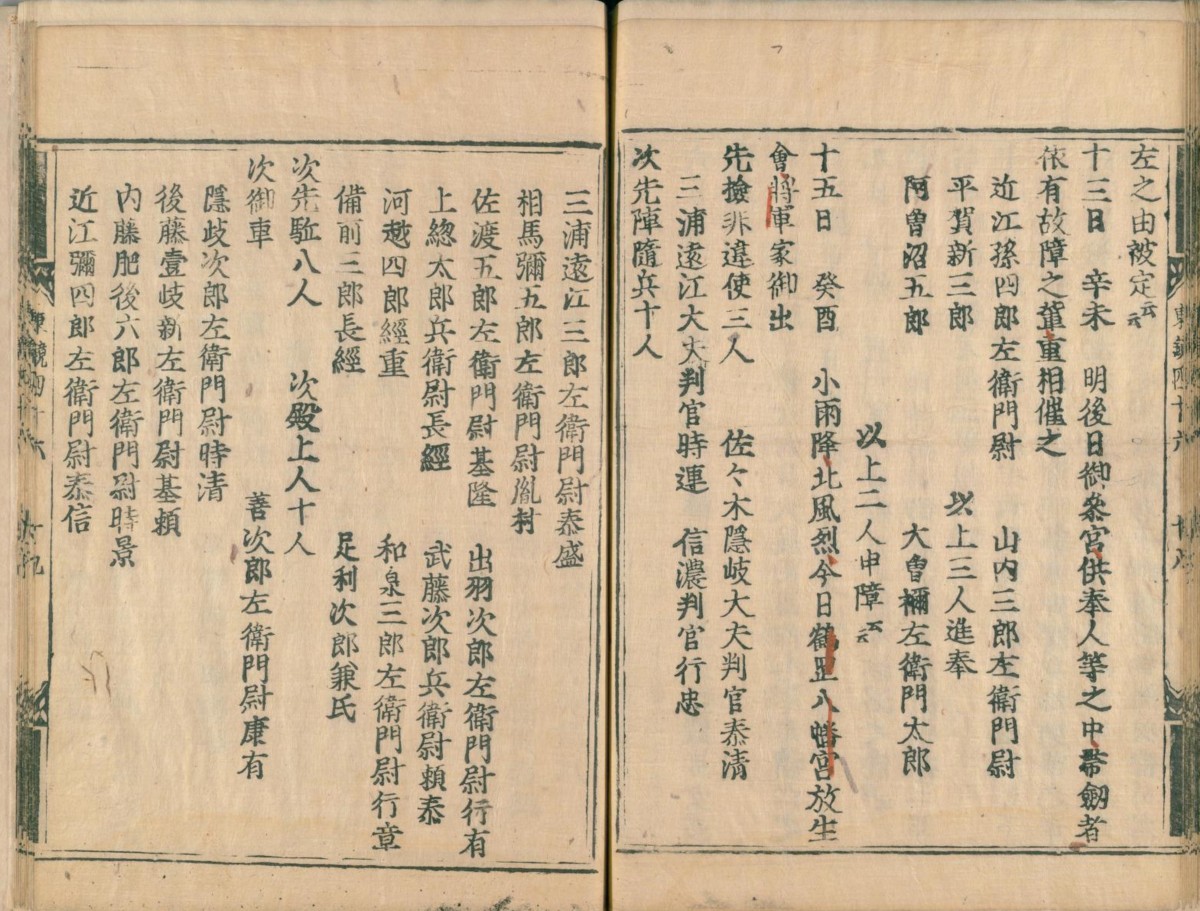 左之由被定云云
十三日　辛未　明後日御參宮供奉人等之中帶劔者
依有故障之輩重相催之
近江孫四郎左衛門尉　山内三郎左衛門尉
平賀新三郎　以上三人進奉
阿曽沼五郎　大曽禰左衛門太郎
以上二人申障云云
十五日　癸酉　小雨降北風烈今日鶴罡八幡宮放生
會將軍家御出
先撿非違使三人　佐々木隱岐大夫判官泰清
三浦遠江大夫判官時連　信濃判官行忠
次先陣隨兵十人
三浦遠江三郎左衛門尉泰盛
相馬彌五郎左衛門尉胤村
佐渡五郎左衛門尉基隆　出羽次郎左衛門尉行有
上總太郎兵衛尉長經　武藤次郎兵衛尉頼泰
河越四郎經重　和泉三郎左衛門尉行章
備前三郎長經　足利次郎兼氏
次先駈八人　次殿上人十人
次御車　善次郎左衛門尉康有
隱岐次郎左衛門尉時清
後藤壹岐新左衛門尉基頼
内藤肥後六郎左衛門尉時景
近江彌四郎左衛門尉泰信